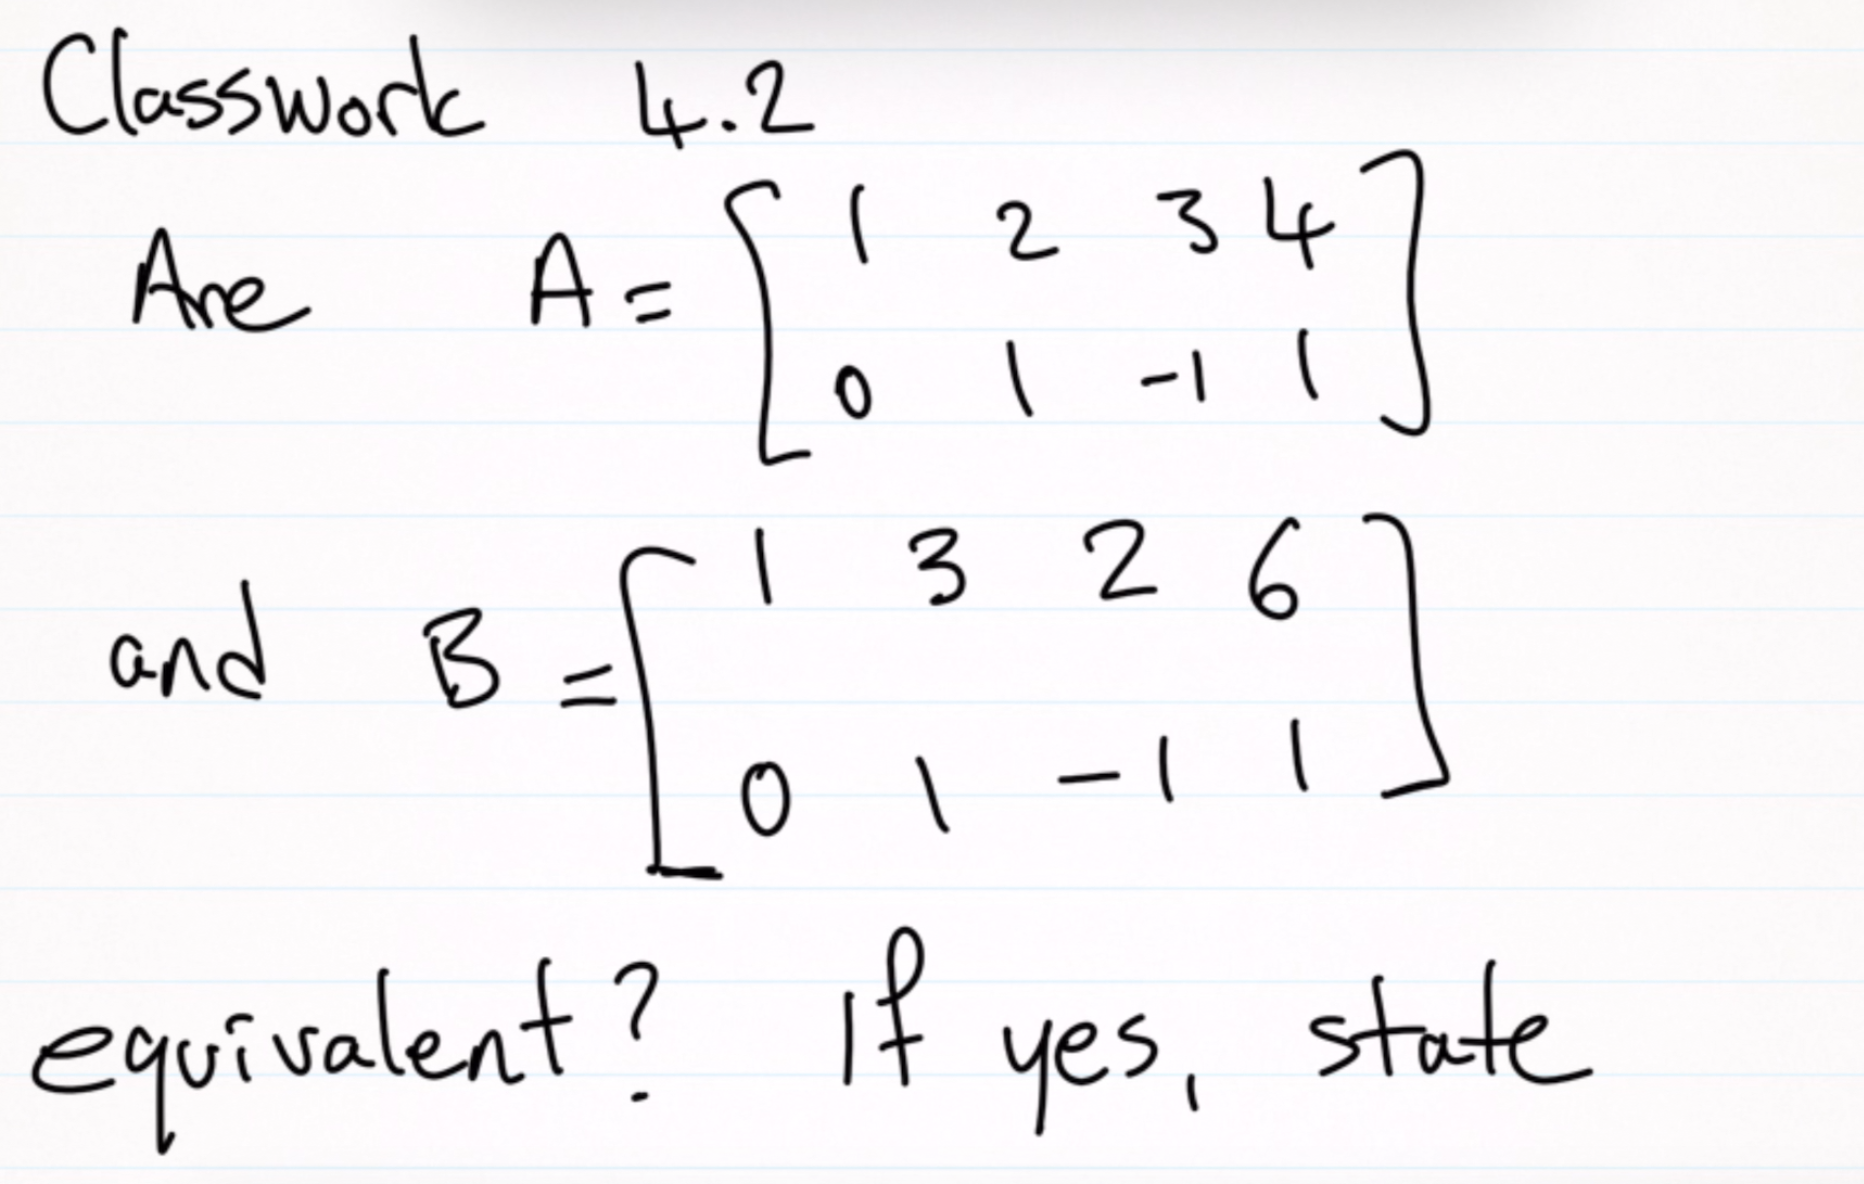 Classwork 4.2
Are A = [ 1 2 3 4
0 1 -1 1 ]
and B = [ 1 3 2 6
0 1 -1 1 ]
equivalent? If yes, state